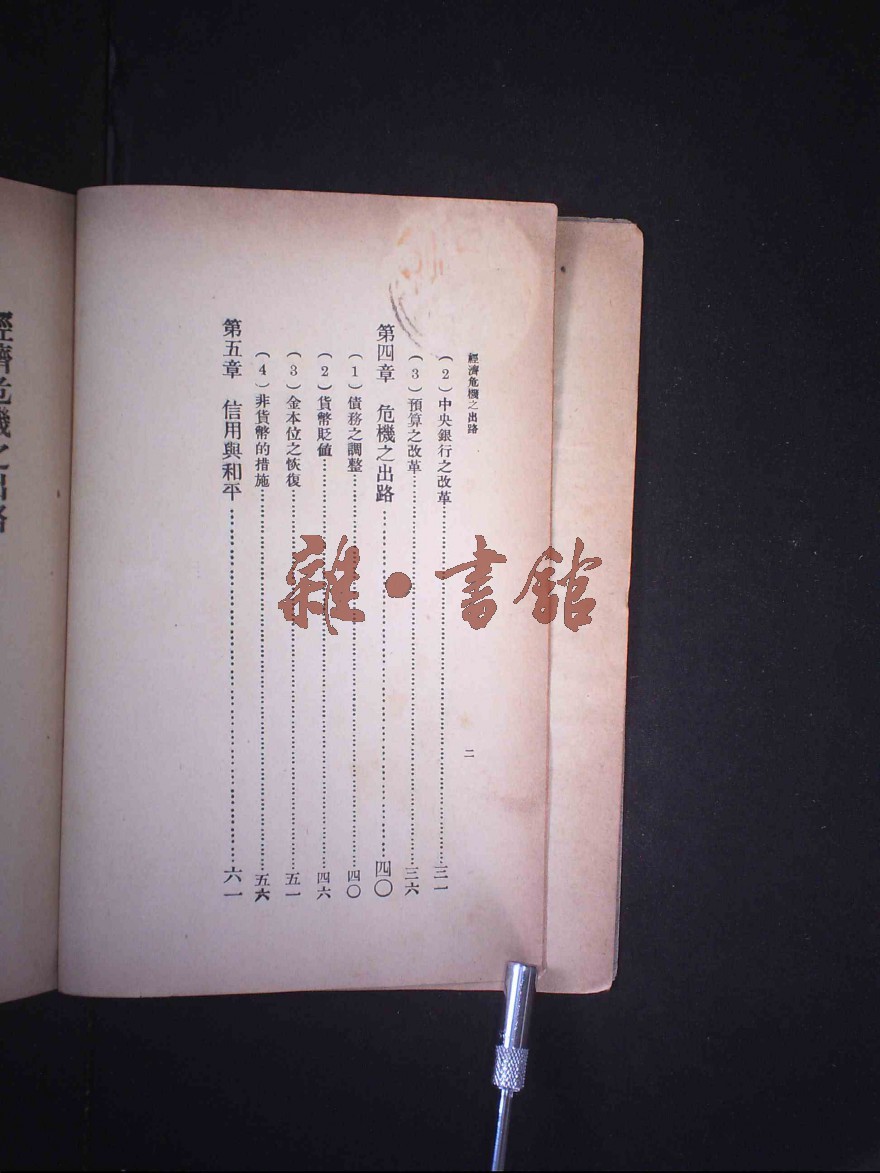 經濟危機之出路
二
(2)中央銀行之改革……三一
(3)預算之改革……三六
第四章 危機之出路……四〇
(1)債務之調整……四〇
(2)貨幣貶值……四六
(3)金本位之恢復……五一
(4)非貨幣的措施……五六
第五章 信用與和平……六一
經濟危機之出路
雜·書館